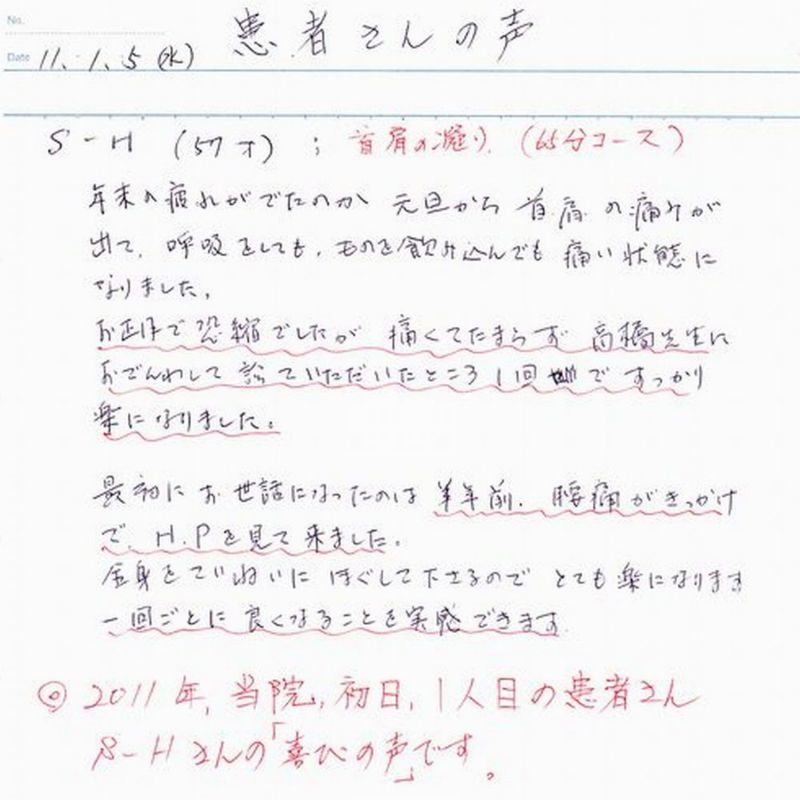 No.
患者さんの声
Date 11.1.5(水)
S-H (57才) ; 首肩の凝り (65分コース)
年末の疲れがでたのか 元旦から 首肩の痛みが
出て、呼吸をしても、ものを飲み込んでも 痛い状態に
なりました。
お正月で恐縮でしたが 痛くてたまらず 高橋先生に
おでんわして 診ていただいたところ 1回 ですっかり
楽になりました。
最初に お世話になったのは 半年前. 腰痛がきっかけ
で、H.Pを見て来ました。
全身をていねいに ほぐして下さるので とても楽になります
一回ごとに 良くなることを実感できます
◎ 2011年, 当院, 初日, 1人目の患者さん
S-Hさんの「喜びの声」です。